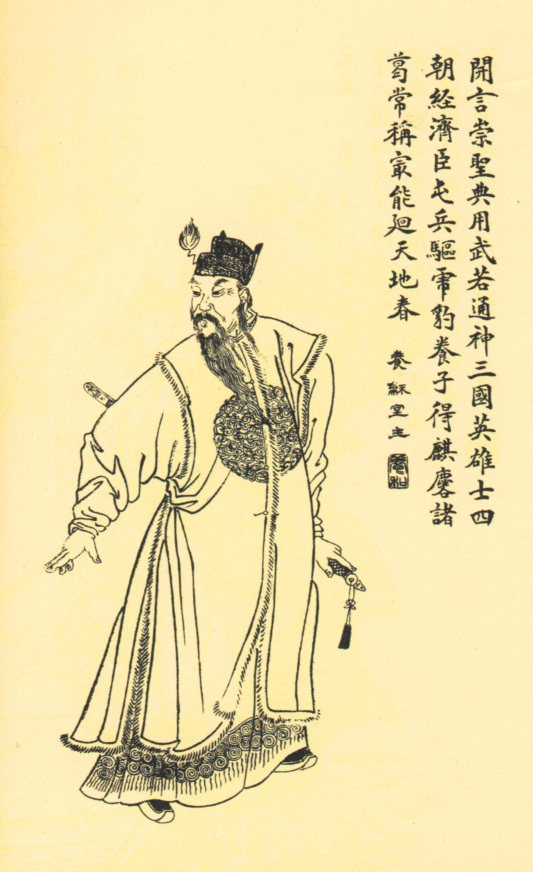 開言崇聖典用武若通神三國英雄士四
朝経濟臣屯兵驅乕豹養子得麒麐諸
葛常稱㝡能廻天地春
養室主